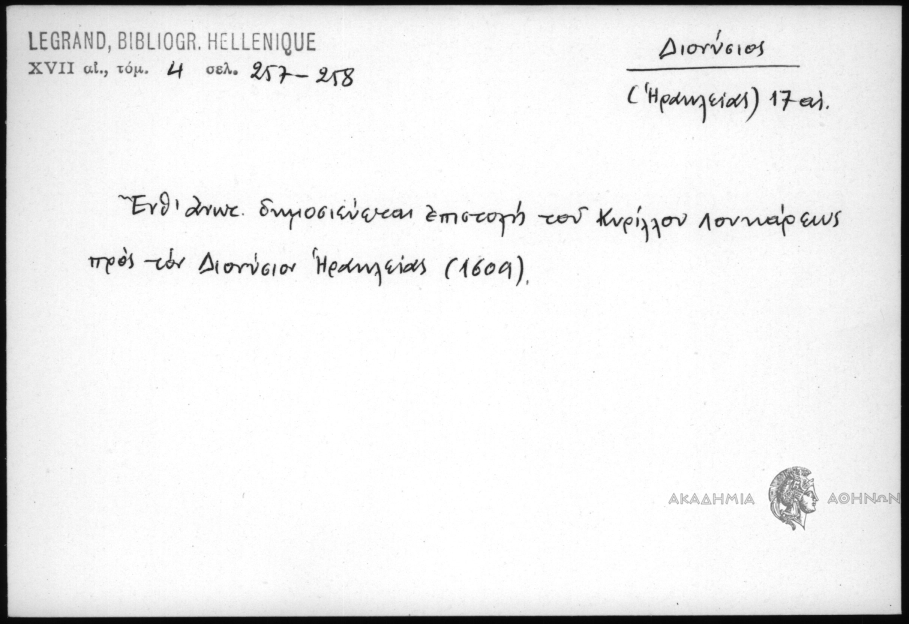 LEGRAND, BIBLIOGR. HELLENIQUE
XVII αἰ., τόμ. 4 σελ. 257-258
Διονύσιος
(Ἡρακλείας) 17 αἰ.
Ἔνθ' ἀνωτ. δημοσιεύεται ἐπιστολή τοῦ Κυρίλλου Λουκάρεως
πρὸς τόν Διονύσιον Ἡρακλείας (1609).
ΑΚΑΔΗΜΙΑ ΑΘΗΝΩΝ